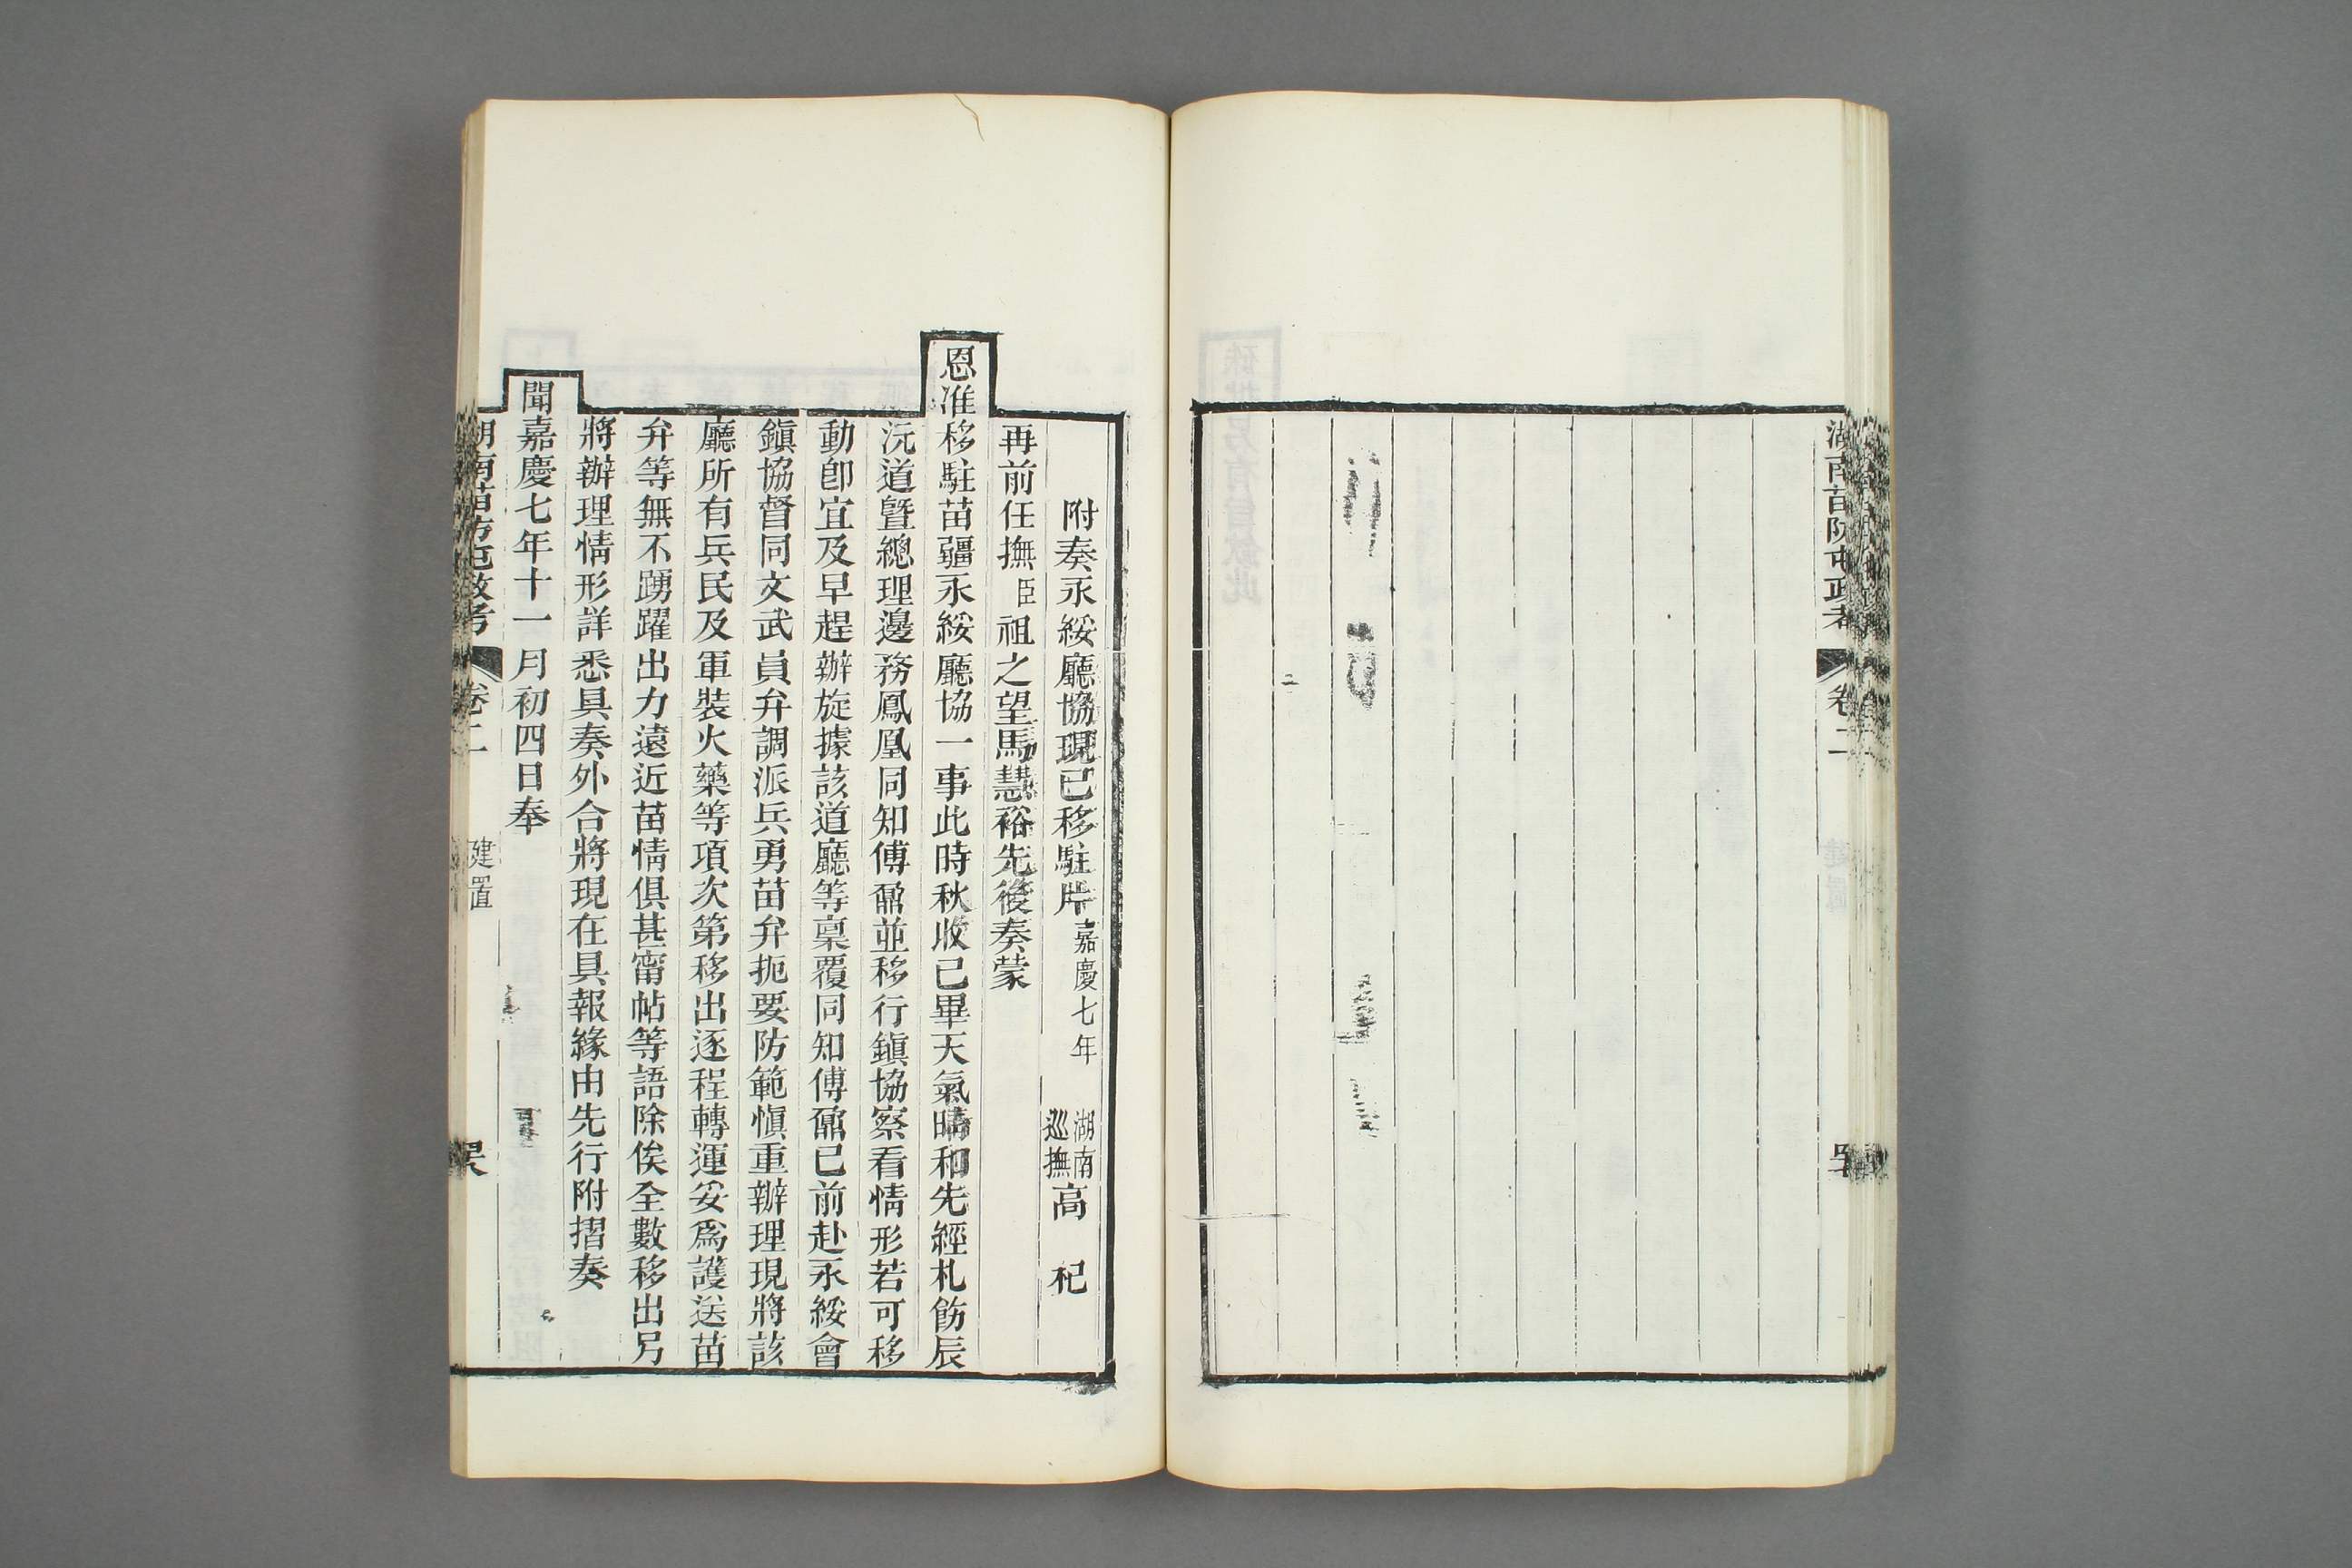 湖南苗防屯政考 卷二
附奏永綏廳協現已移駐片 嘉慶七年 湖南巡撫高 杞
再前任撫臣祖之望馬慧裕先後奏蒙
恩准移駐苗疆永綏廳協一事此時秋收已畢天氣晴和先經札飭辰
沅道暨總理邊務鳳凰同知傅鼐並移行鎭協察看情形若可移
動卽宜及早趕辦旋據該道廳等稟覆同知傅鼐已前赴永綏會
鎭協督同文武員弁調派兵勇苗弁扼要防範愼重辦理現將該
廳所有兵民及軍裝火藥等項次第移出逐程轉運妥爲護送苗
弁等無不踴躍出力遠近苗情俱甚甯帖等語除俟全數移出另
將辦理情形詳悉具奏外合將現在具報緣由先行附摺奏
聞嘉慶七年十一月初四日奉
湖南苗防屯政考 卷二 建置